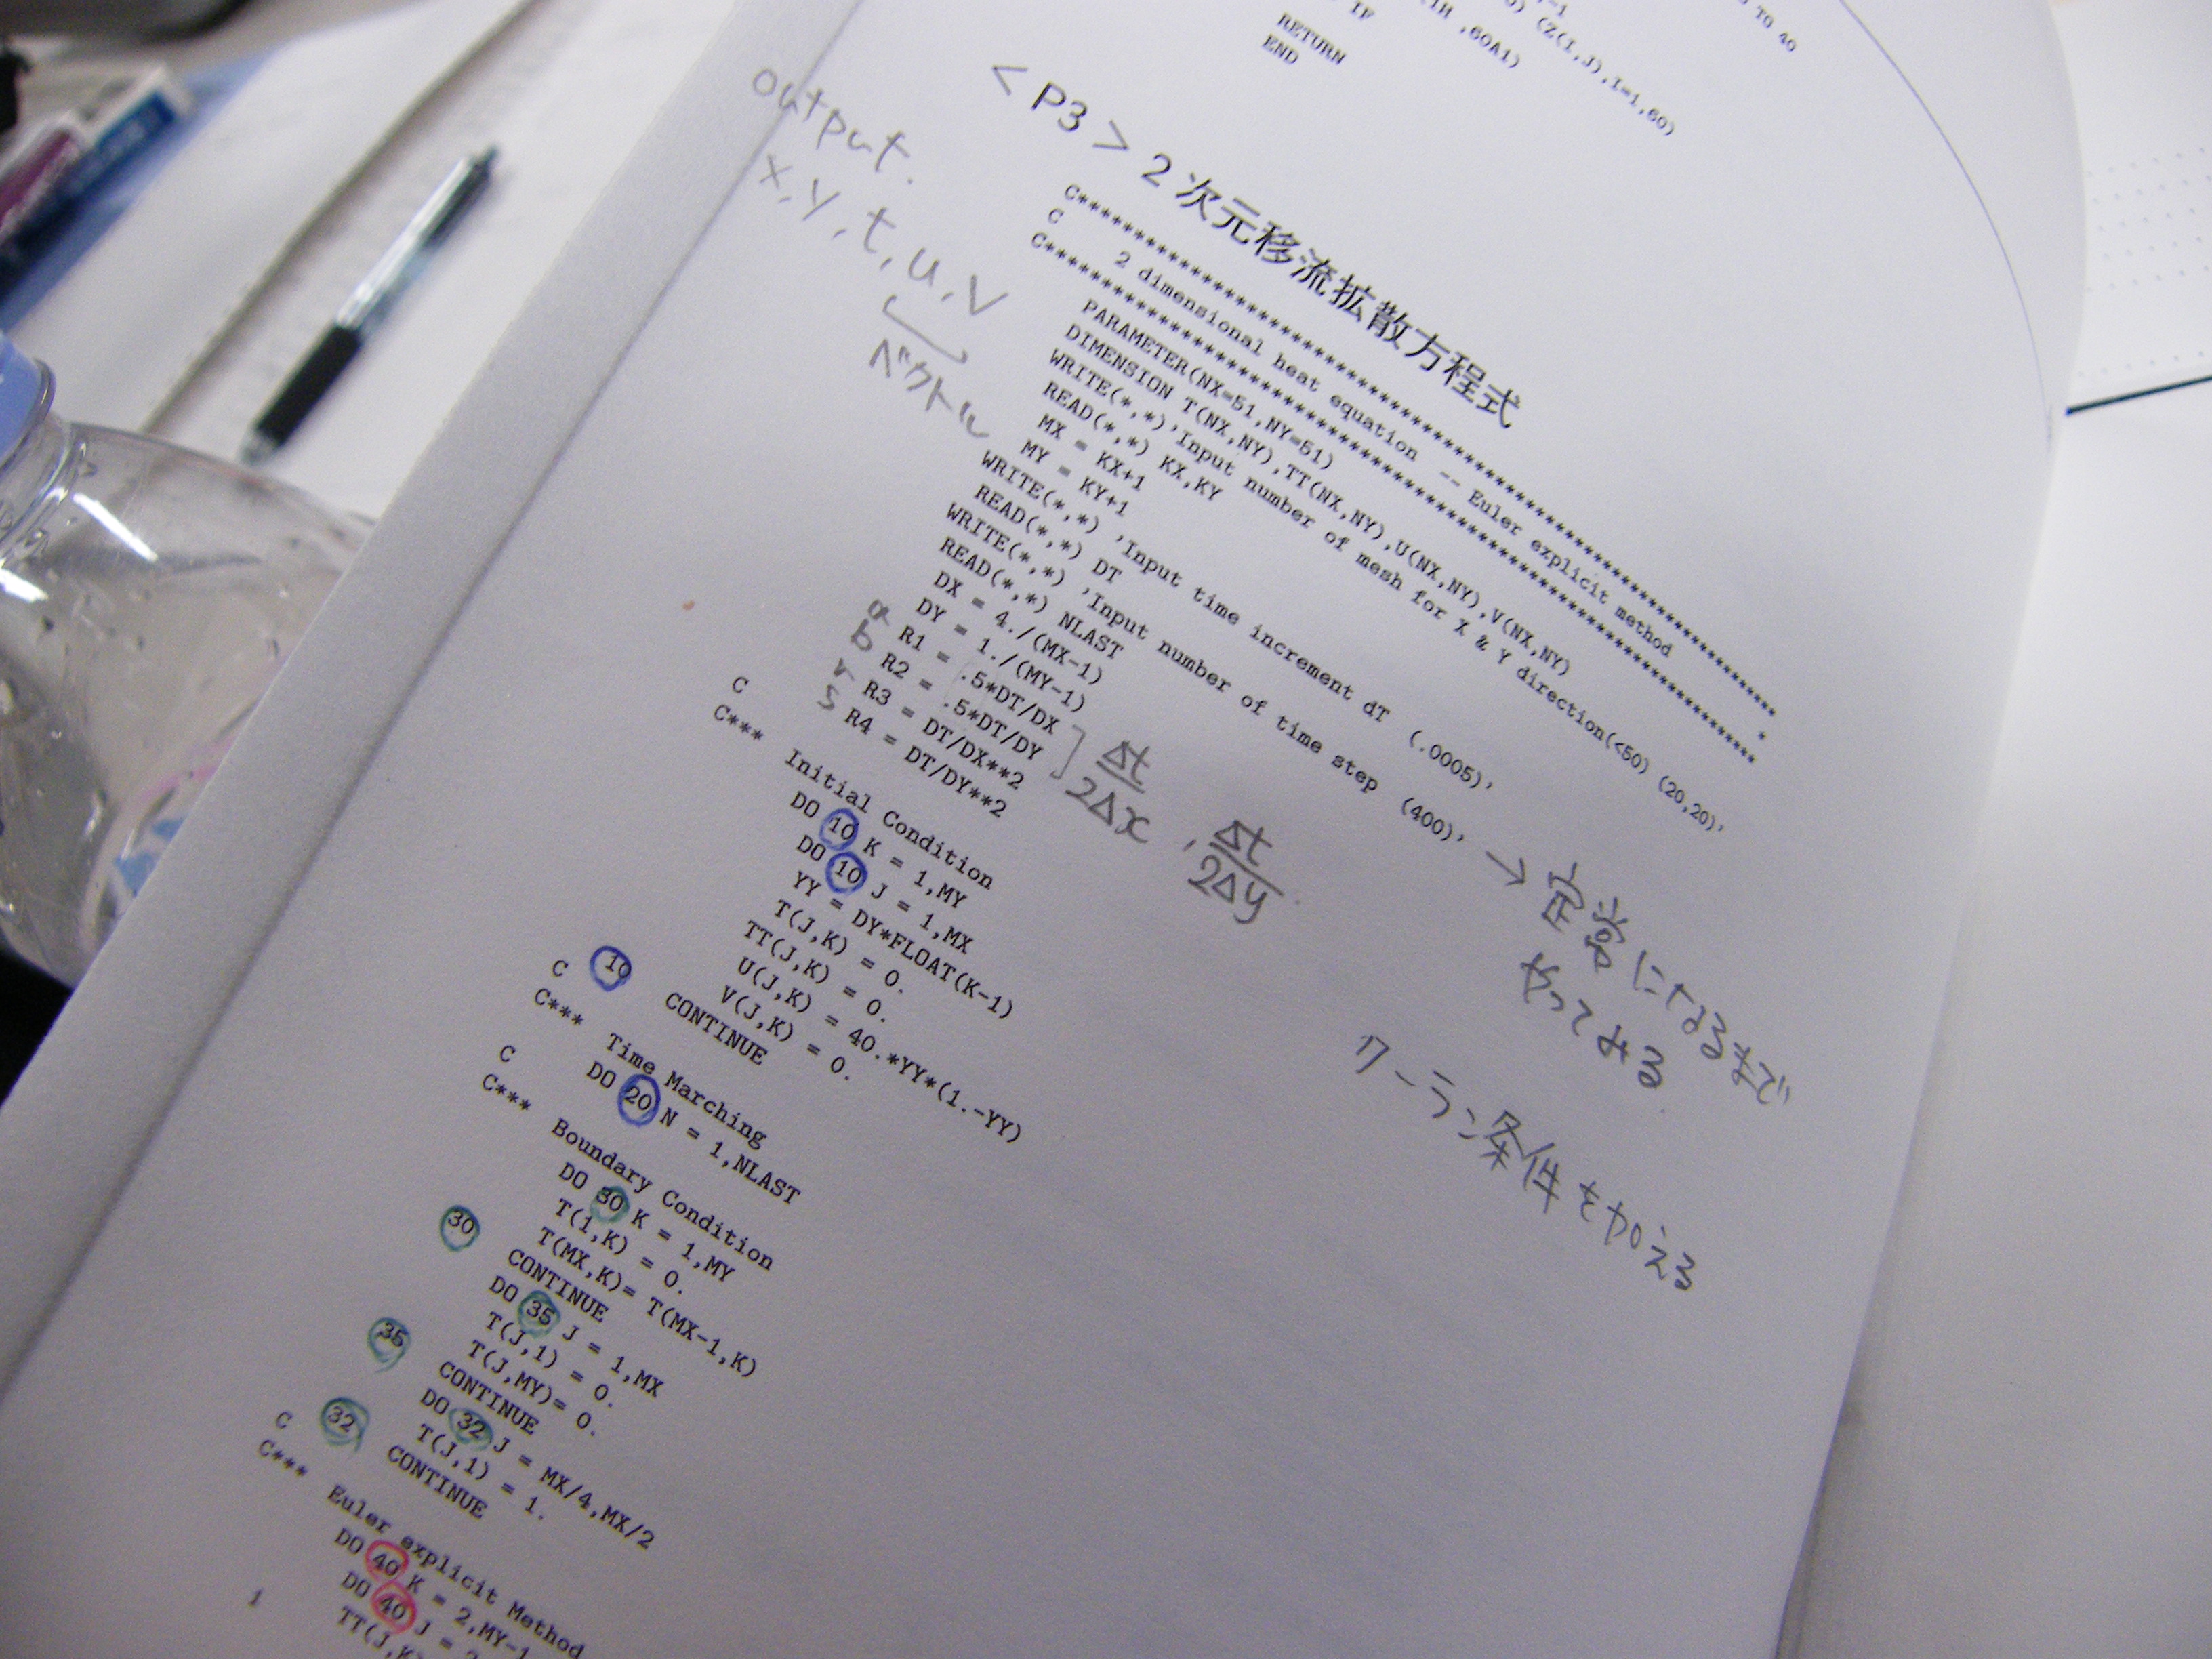 TO 40
(Z(I,J),I=1,60)
,60A1)
IF
RETURN
END
< P3 > 2 次元移流拡散方程式
C**********************************************************
C 2 dimensional heat equation -- Euler explicit method *
C**********************************************************
PARAMETER(NX=51,NY=51)
DIMENSION T(NX,NY),TT(NX,NY),U(NX,NY),V(NX,NY)
WRITE(*,*)'Input number of mesh for X & Y direction(<50) (20,20)'
READ(*,*) KX,KY
MX = KX+1
MY = KY+1
WRITE(*,*) 'Input time increment dT (.0005)'
READ(*,*) DT
WRITE(*,*) 'Input number of time step (400)'
READ(*,*) NLAST
DX = 4./(MX-1)
DY = 1./(MY-1)
a R1 = .5*DT/DX
b R2 = .5*DT/DY
r R3 = DT/DX**2
s R4 = DT/DY**2
C
C*** Initial Condition
DO 10 K = 1,MY
DO 10 J = 1,MX
YY = DY*FLOAT(K-1)
T(J,K) = 0.
TT(J,K) = 0.
U(J,K) = 40.*YY*(1.-YY)
V(J,K) = 0.
10 CONTINUE
C
C*** Time Marching
DO 20 N = 1,NLAST
C
C*** Boundary Condition
DO 30 K = 1,MY
T(1,K) = 0.
T(MX,K)= T(MX-1,K)
30 CONTINUE
DO 35 J = 1,MX
T(J,1) = 0.
T(J,MY)= 0.
35 CONTINUE
DO 32 J = MX/4,MX/2
T(J,1) = 1.
32 CONTINUE
C
C*** Euler explicit Method
DO 40 K = 2,MY-1
DO 40 J =
TT(J,K)
1
output.
x,y,t,u,v
ベクトル
Δt/2Δx , Δt/2Δy
→ 定常になるまで
やってみる
クーラン条件を加える